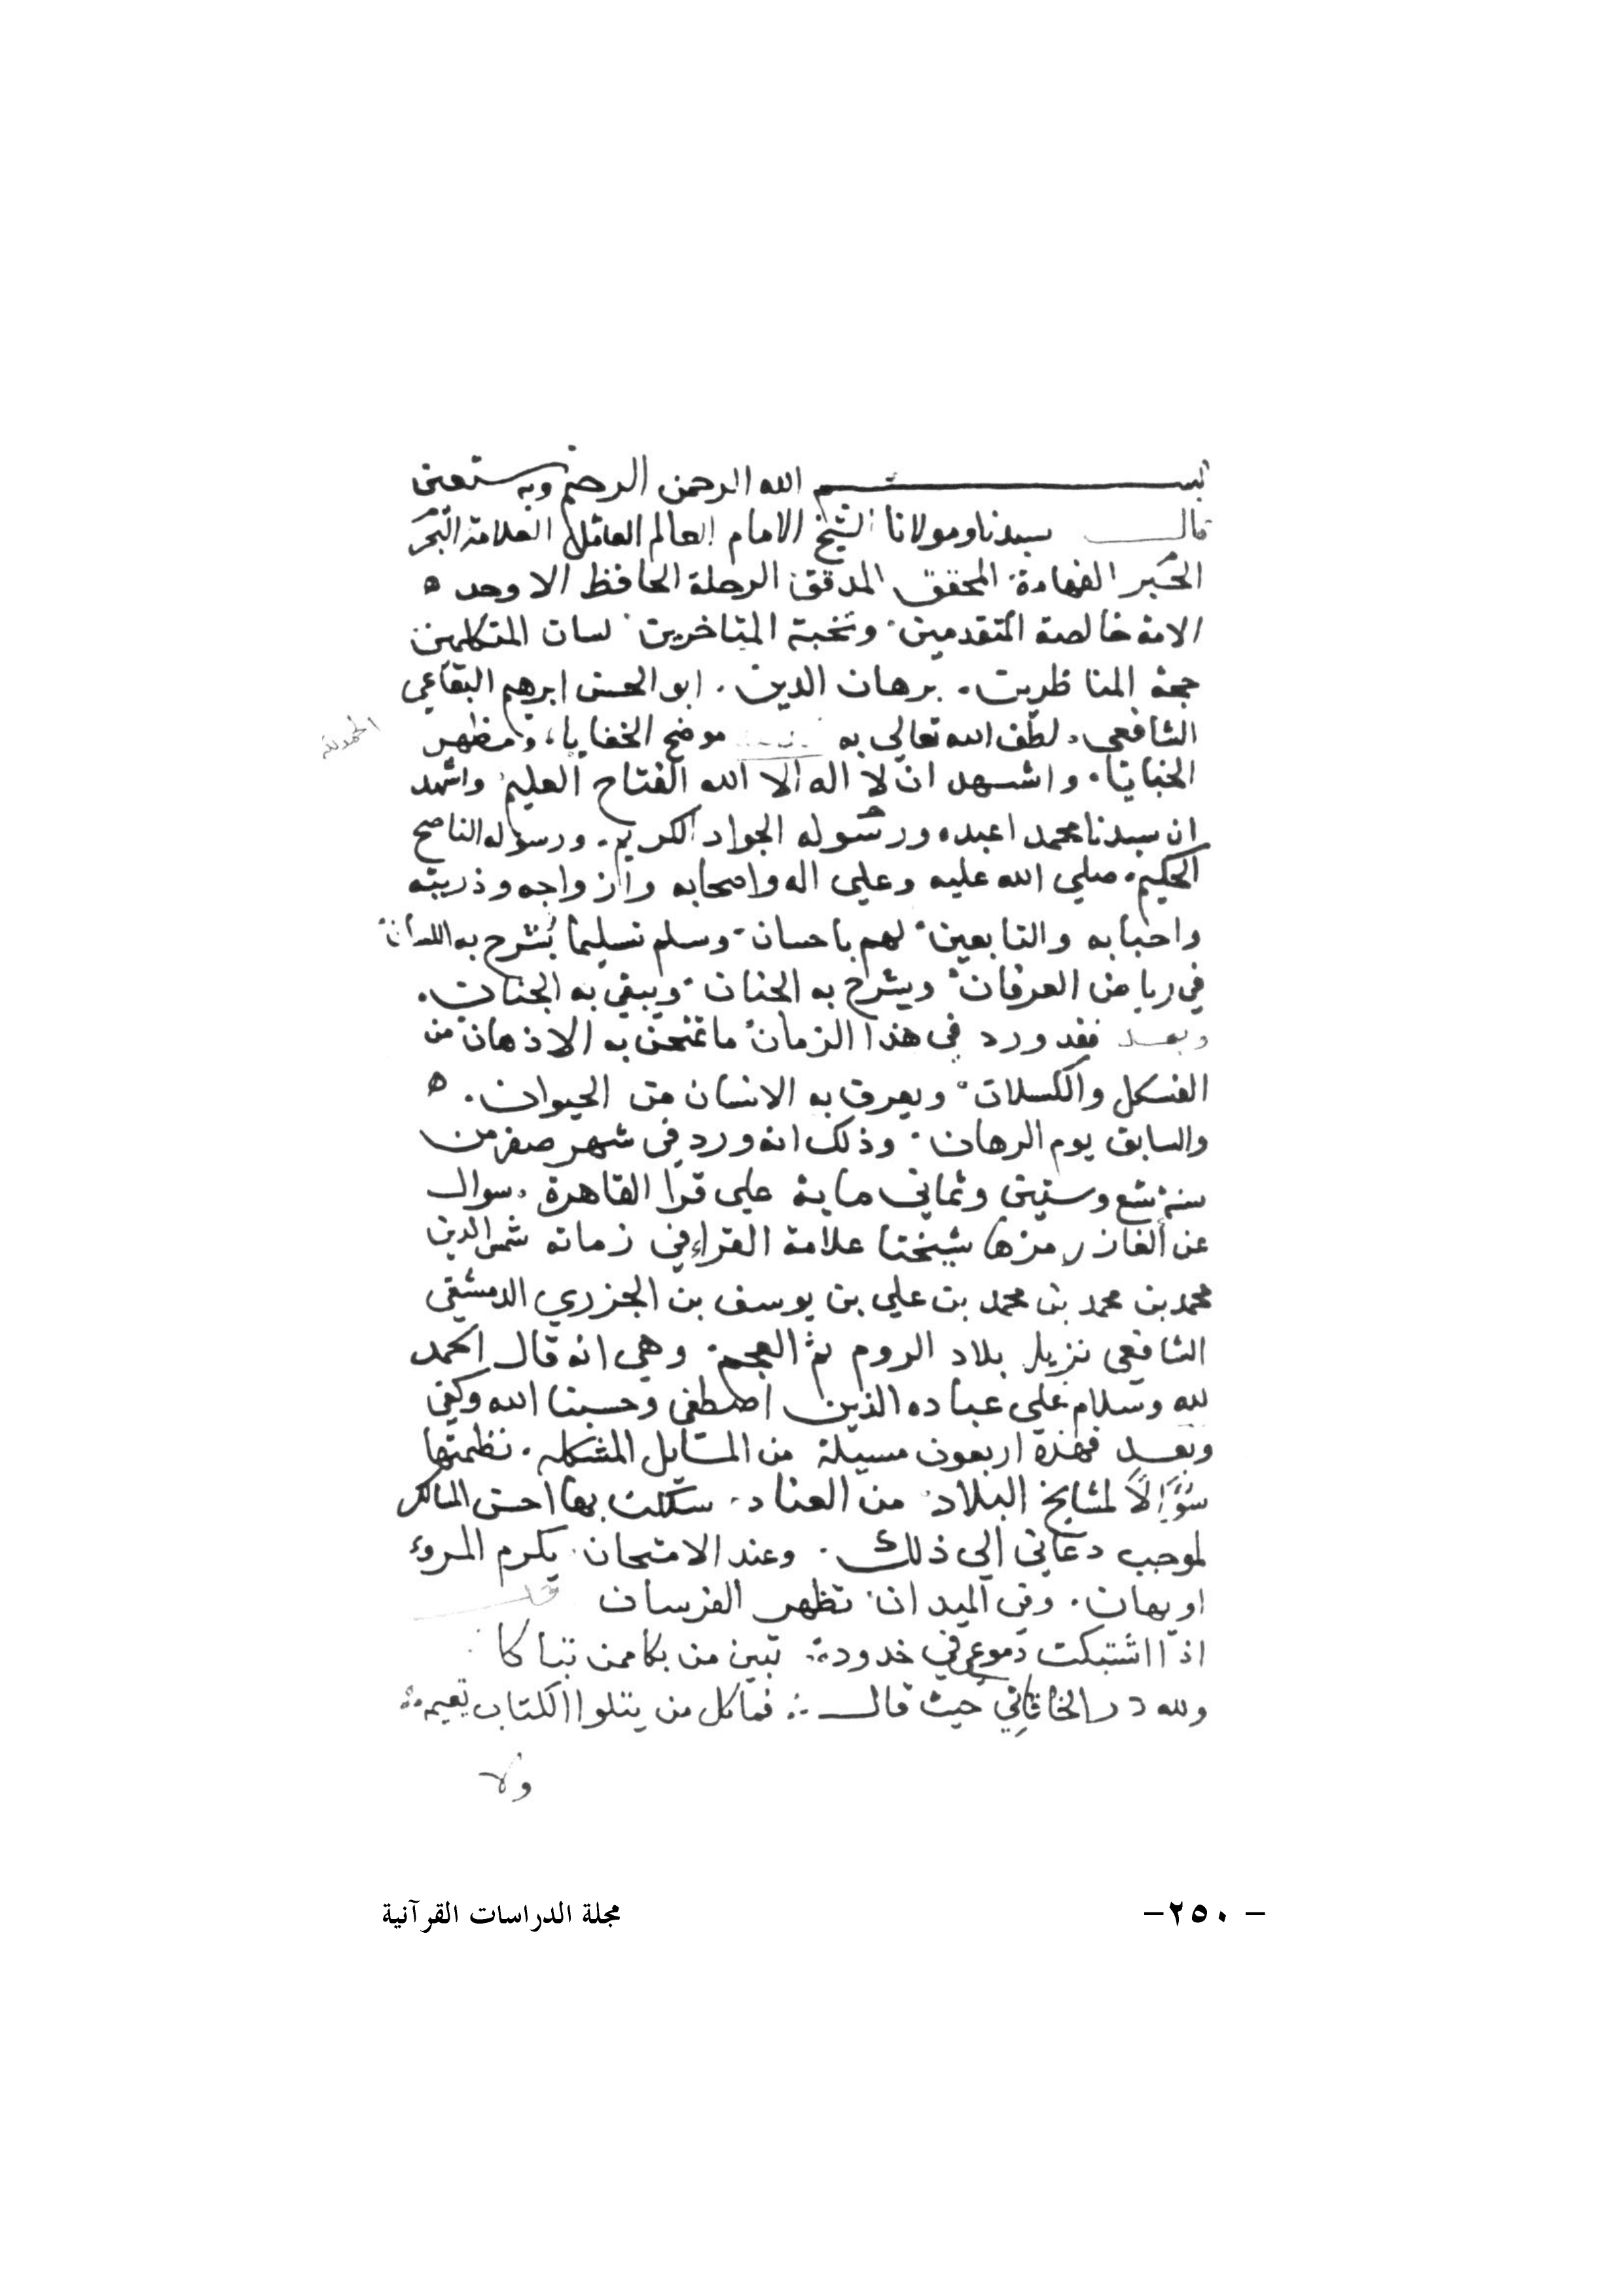 بسم الله الرحمن الرحيم وبه نستعين
قال سيدنا ومولانا الشيخ الامام العالم العامل العلامة البحر
الحبر الفهامة المحقق المدقق الرحلة الحافظ الاوحد ه
الامة خالصة المتقدمين ونخبة المتاخرين لسان المتكلمين
حجة المناظرين. برهان الدين. ابو الحسن ابرهيم البقاعي
الشافعي. لطف الله تعالي به موضح الخفايا، ومظهر
الحمد لله
الخبايا. واشهد ان لا اله الا الله الفتاح العليم واشهد
ان سيدنا محمدا عبده ورسوله الجواد الكريم. ورسوله الناصح
الحكيم. صلي الله عليه وعلي اله واصحابه وازواجه وذريته
واحبابه والتابعين لهم باحسان وسلم تسليما يشرح به اللدان
في رياض العرفان ويشرح به الجنان ويبقي به الجنان.
وبعد فقد ورد في هذا الزمان ما تمتحن به الاذهان من
الفسكل والكسلان ويعرف به الانسان من الحيوان. ه
والسابق يوم الرهان. وذلك انه ورد في شهر صفر من
سنة تسع وستين وثماني ماية علي قرا القاهرة. سوال
عن ألغاز رمزها شيخنا علامة القراء في زمانه شمس الدين
محمد بن محمد بن محمد بن علي بن يوسف بن الجزري الدمشقي
الشافعي نزيل بلاد الروم ثم العجم. وهي انه قال الحمد
لله وسلام علي عباده الذين اصطفي وحسبنا الله وكفي
وبعد فهذه اربعون مسيلة من المسايل المشكله. نظمتها
سؤالا لمشايخ البلاد من العناد. سلكت بها احسن المسالك
لموجب دعاني الي ذلك. وعند الامتحان يكرم المروء
او يهان. وفي الميدان تظهر الفرسان
اذا اشتبكت دموع في خدود تبين من بكا ممن تباكا
ولله در الخاقاني حيث قال فما كل من يتلوا الكتاب يقيمه
ولا
- ٢٥٠ -
مجلة الدراسات القرآنية